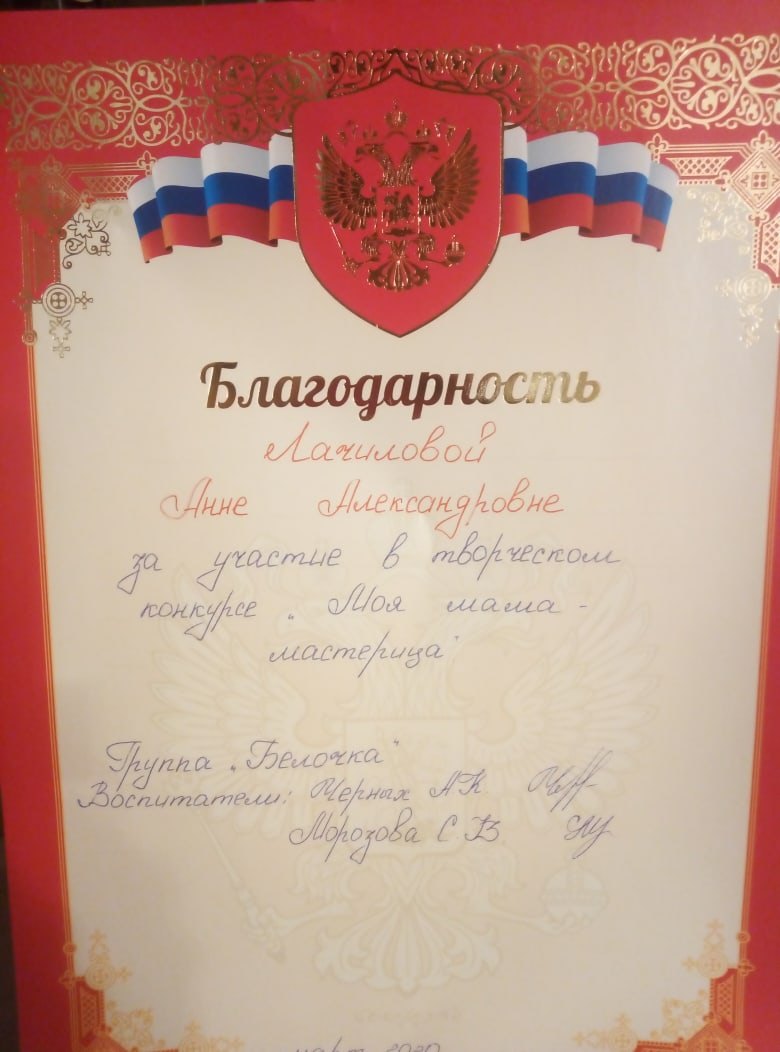 Благодарность
Лачиловой
Анне Александровне
за участие в творческом
конкурсе „Моя мама -
мастерица"
Группа „Белочка"
Воспитатели: Черных А К
Морозова С. В
март 2020